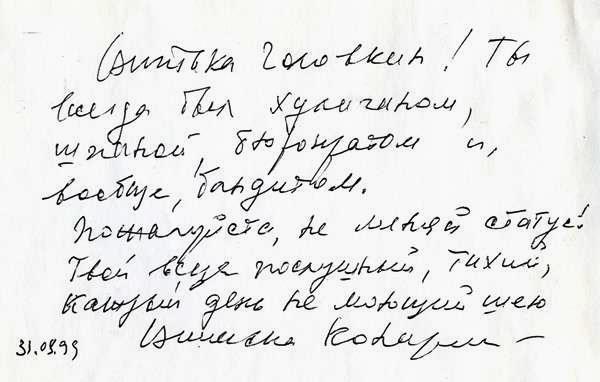 Витька Головкин! Ты
всегда был хулиганом,
шпаной, бюрократом и,
вообще, бандитом.
Пожалуйста, не меняй статус!
Твой всегда послушный, тихий,
каждый день не моющий шею
31.03.99